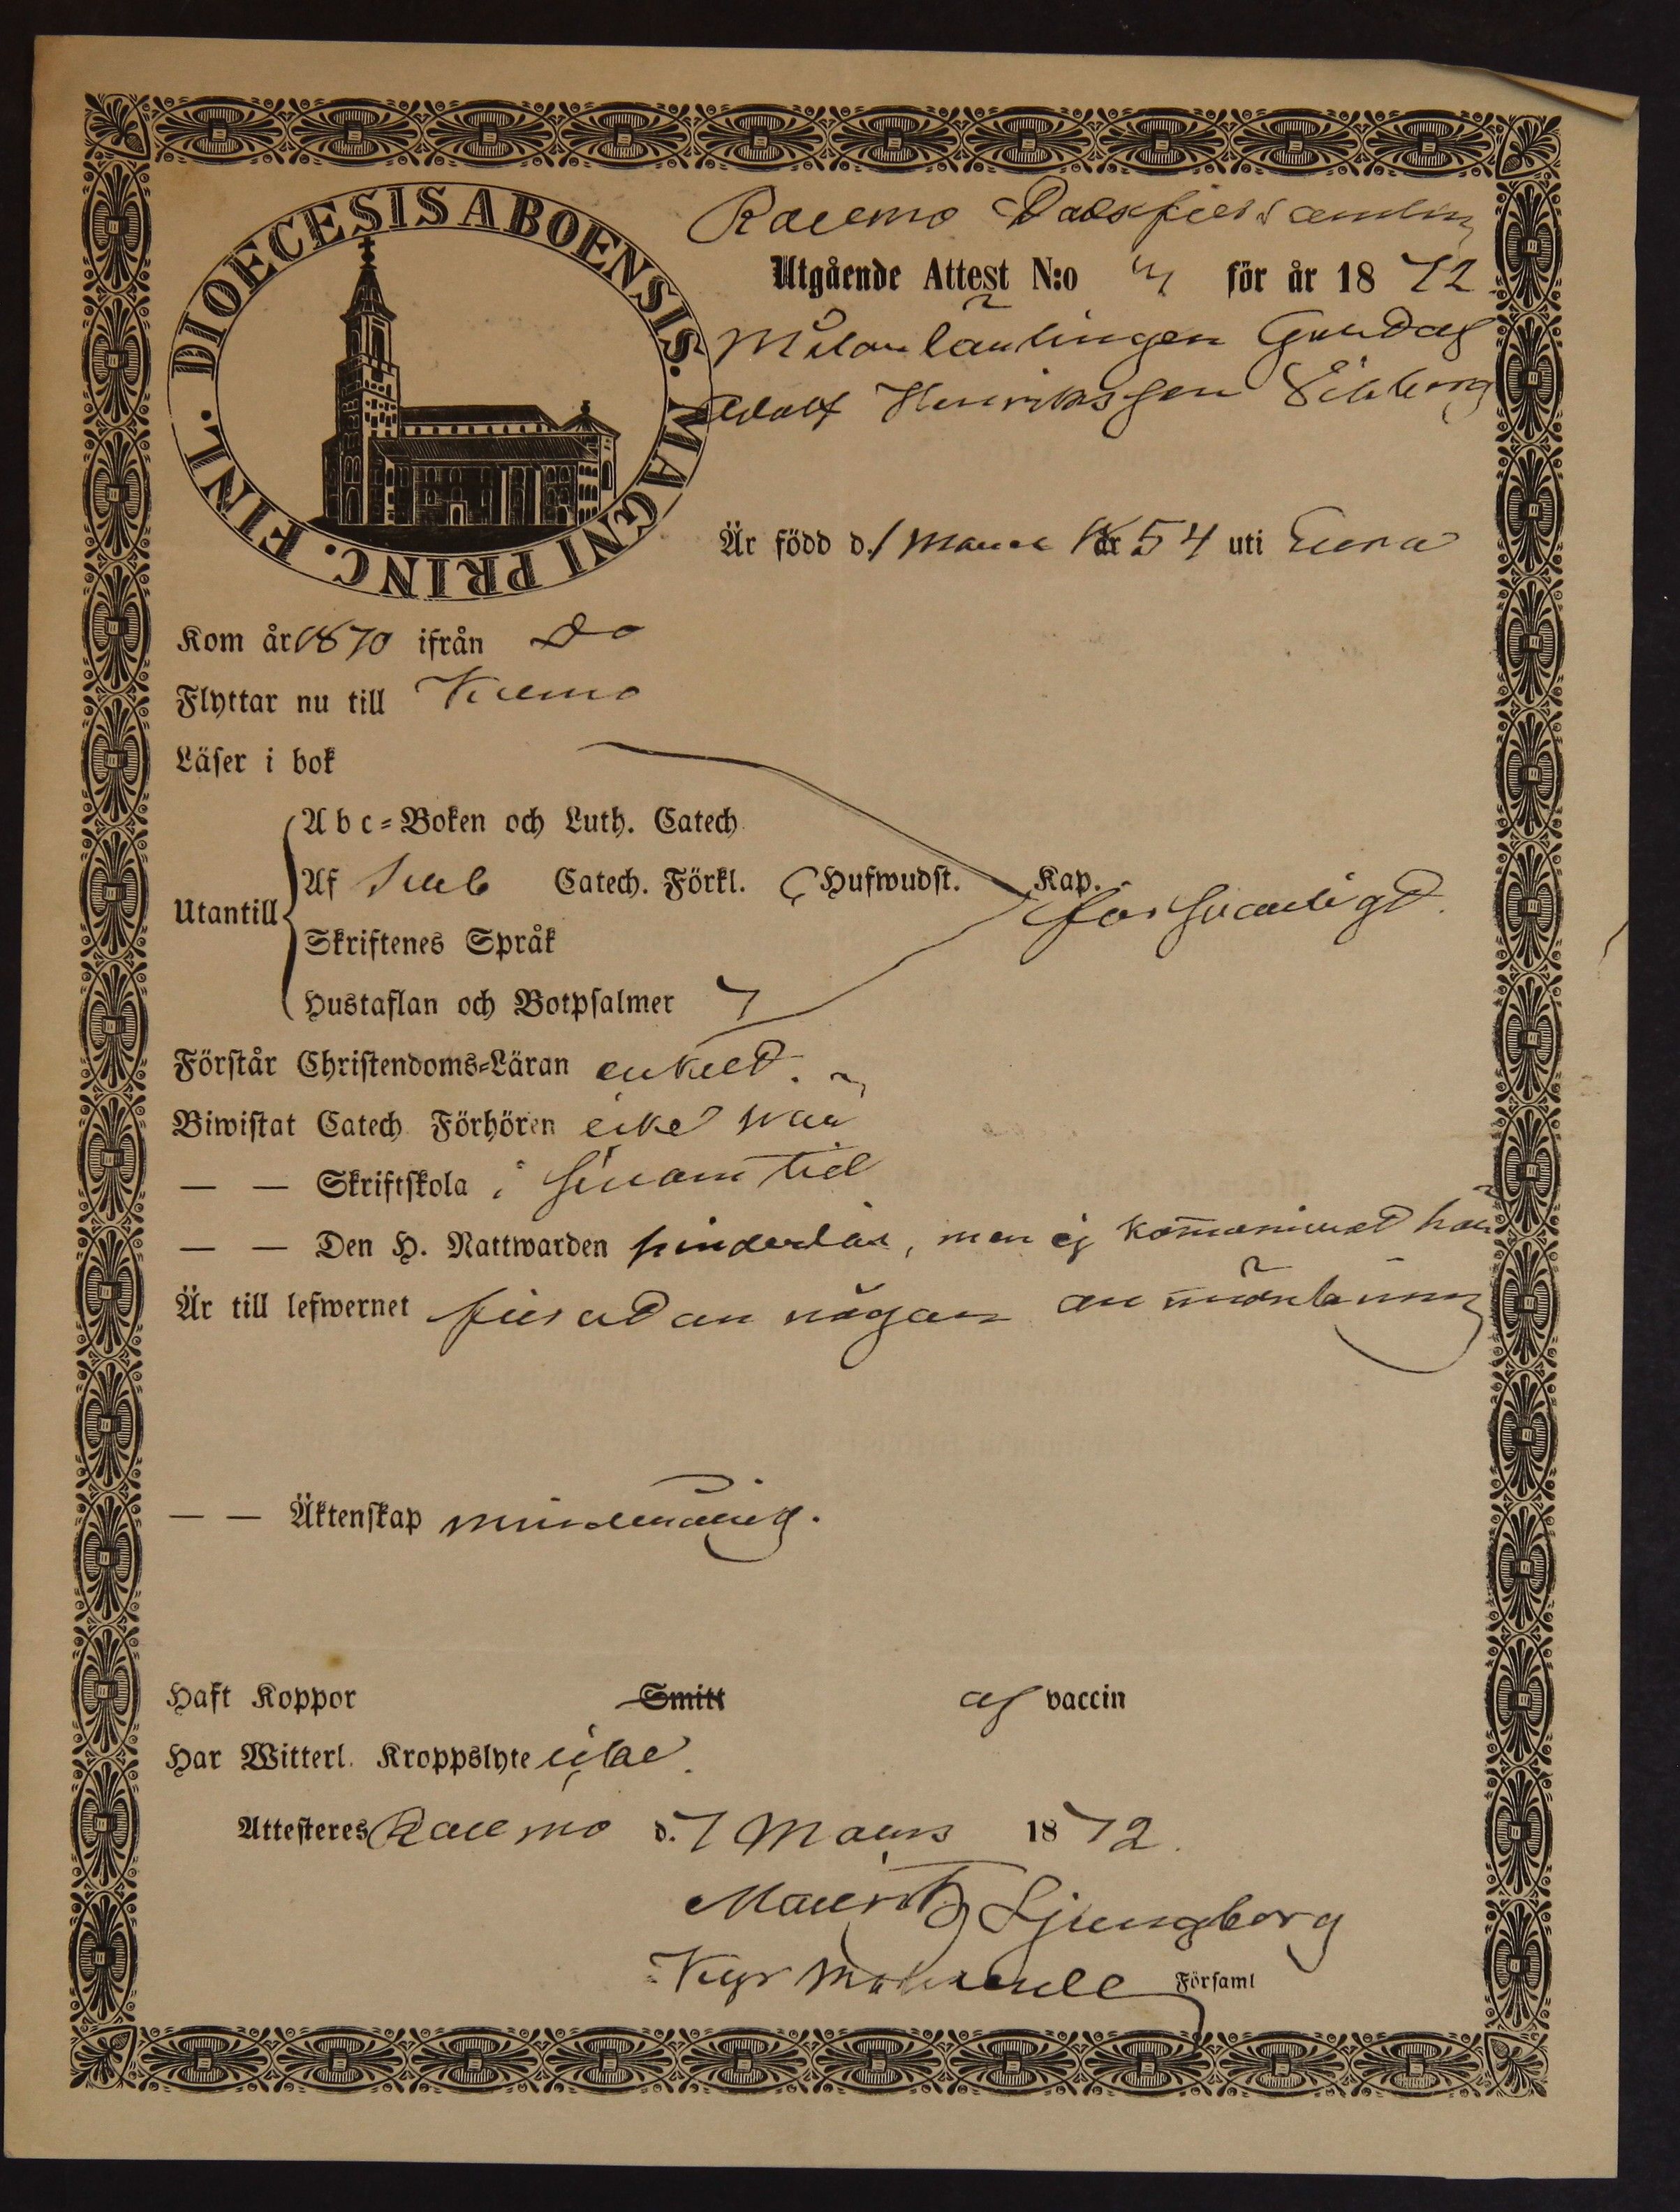 DIOECESIS ABOENSIS. MAGNI PRINC. FINL.
Raumo
Utgående Attest N:o för år 1872
Gustaf
Adolf Henriksson
Är född d. 1 Mars 1854 uti Eura
Kom år 1870 ifrån Do
Flyttar nu till Kiumo
Läser i bok
Abc-Boken och Luth. Catech.
Utantill
Af Sveb Catech. Förkl. Hufwudst. Kap.
försvarligt.
Skriftenes Språk
Hustaflan och Botpsalmer
Förstår Christendoms-Läran enkelt.
Biwistat Catech. Förhören icke här
— — Skriftskola i sinom tid
— — Den H. Nattwarden hinderlös, men ej här
Är till lefwernet utan någon anmärkning
— — Äktenskap minderårig.
Haft Koppor Smitt af vaccin
Har Witterl. Kroppslyte icke.
Attesteres Raumo d. 7 Mars 1872.
Mauritz Ljungberg
Församl